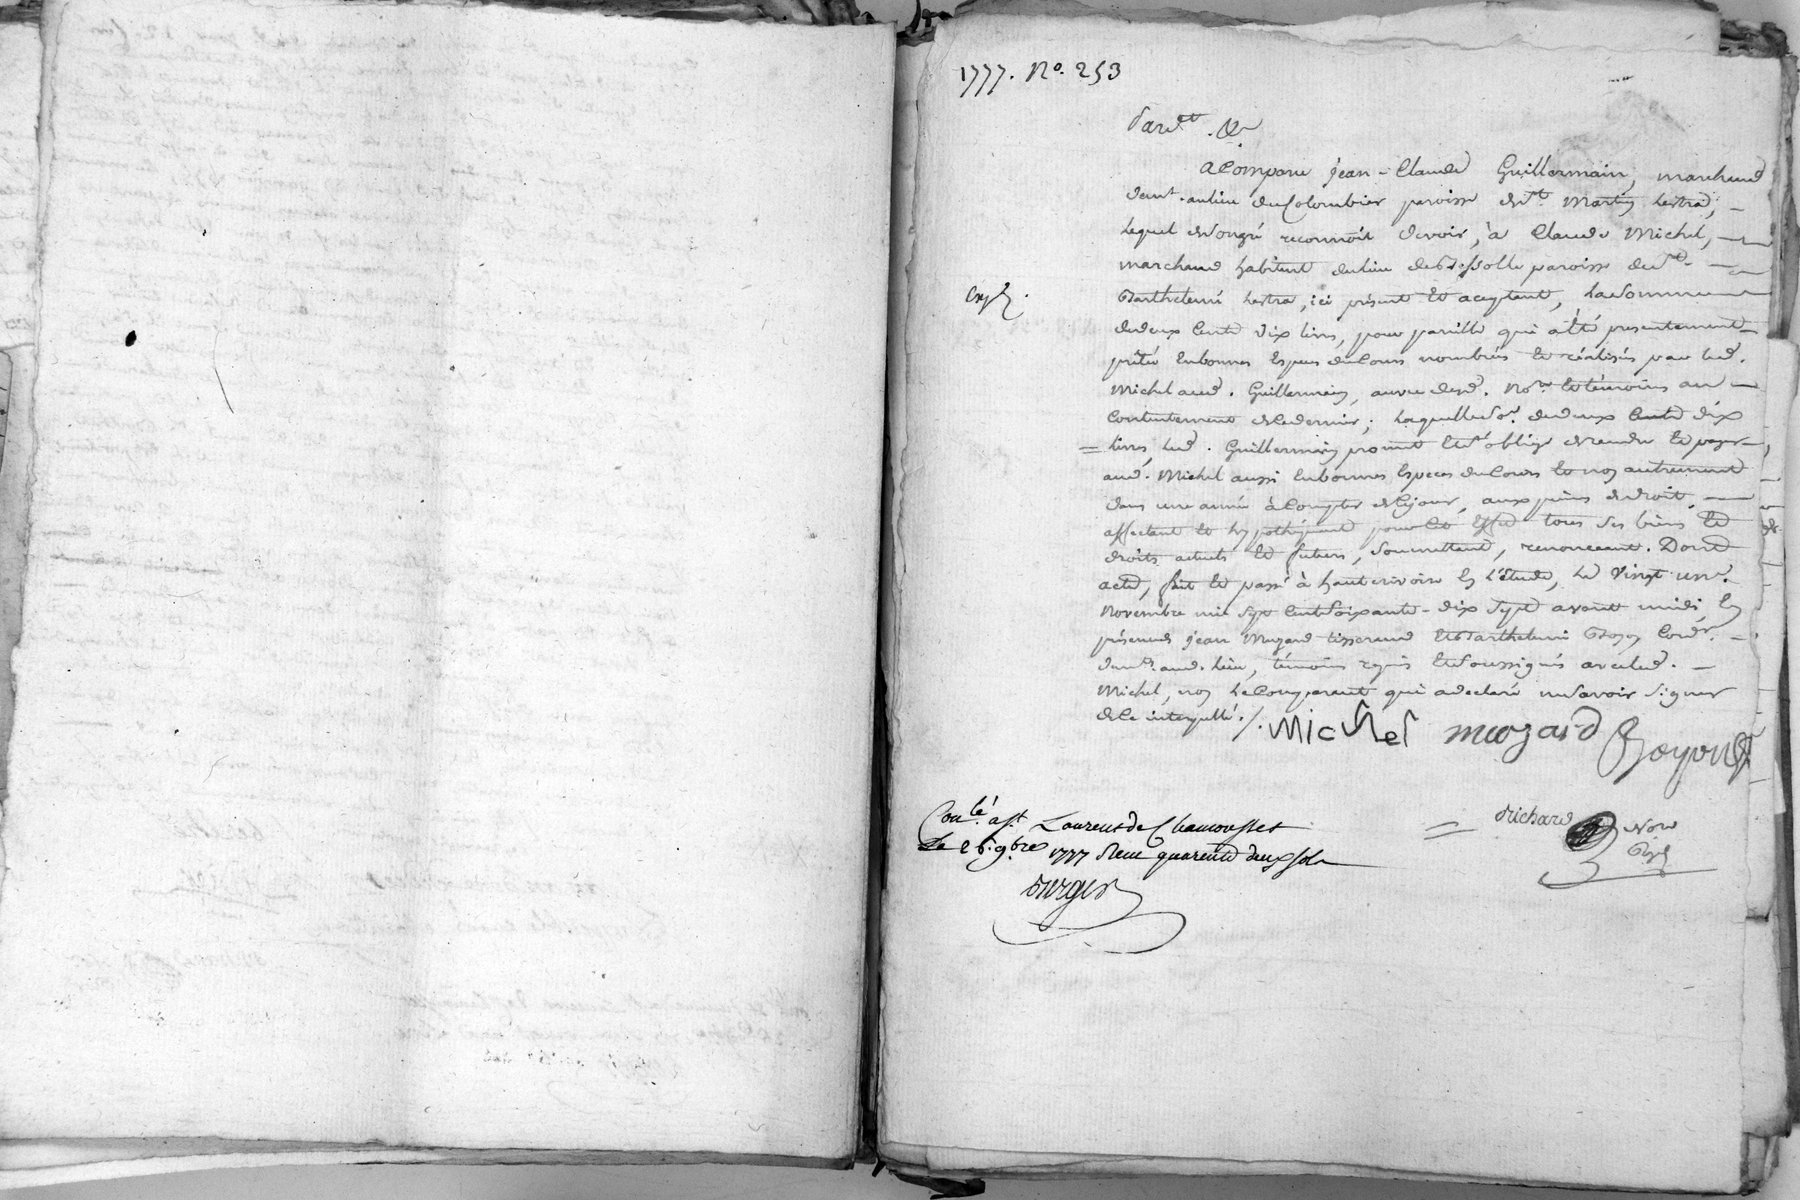 1777. No. 253
Pardt. &
a Comparu jean-Claude Guillermain, marchand
demt. au lieu du Colombier paroisse de St. Martin Lestra,
lequel de son gré reconnoit devoir, à Claude Michel,
marchand habitant du lieu de paroisse de St.
Expé.
Barthelemi Lestra, ici présent et aceptant, la Somme
de deux Cents dix livres, pour pareille qui a été présentement
prêtée en bonnes Especes du Cours nombrées et réalisées par led.
Michel aud. Guillermain, au vu desd. Nore. et témoins au
Contentement de ce dernier; laquelle Some. de deux Cents dix
livres, led. Guillermain promet et s'oblige de rendre et payer
aud. Michel aussi en bonnes Especes du Cours et non autrement
dans une année à Compter de Ce jour, aux peines de droit
affectant et hypothéquant pour Cet effet tous Ses biens et
droits actuels et futurs, Soumettant, renonceant. Dont
acte, fait et passé à hauterivoire En l'étude, le Vingt un
Novembre mil Sept Cent Soixante-dix Sept avant midi En
présence de jean Mozard tisserand et Barthelemi Boyon Cordr.
demt. aud. lieu, témoins requis et Soussignés avec led.
Michel, non le Comparant qui a declaré ne Savoir Signer
de ce interpellé. /. Michel mozard Boyon
Conlé. a St. Laurent de Chamousset
Le 26. 9bre 1777 Reçu quarente deux Sols
= Richard Nore
Ryl